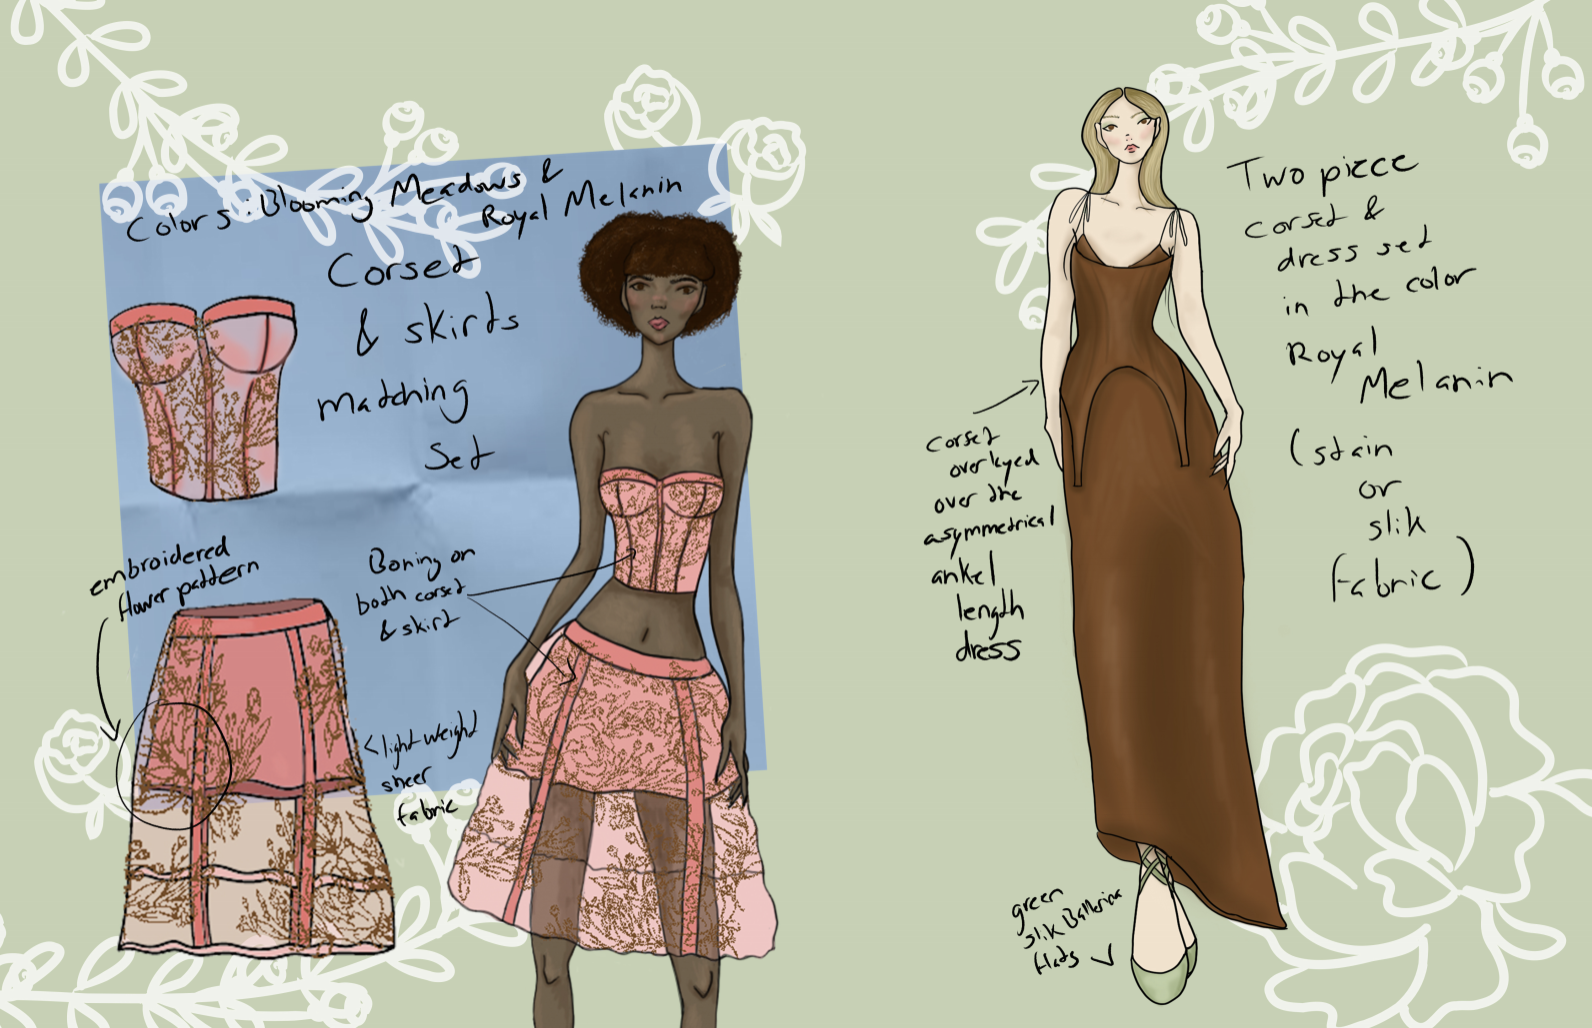 Colors: Blooming Meadows &
Royal Melanin
Corset
& skirts
matching
set
embroidered
flower pattern
Boning on
both corset
& skirt
<light weight
sheer
fabric
Two piece
corset &
dress set
in the color
Royal
Melanin
(stain
or
slik
fabric)
corset
overlayed
over the
asymmetrical
ankel
length
dress
green
slik Ballerina
flats